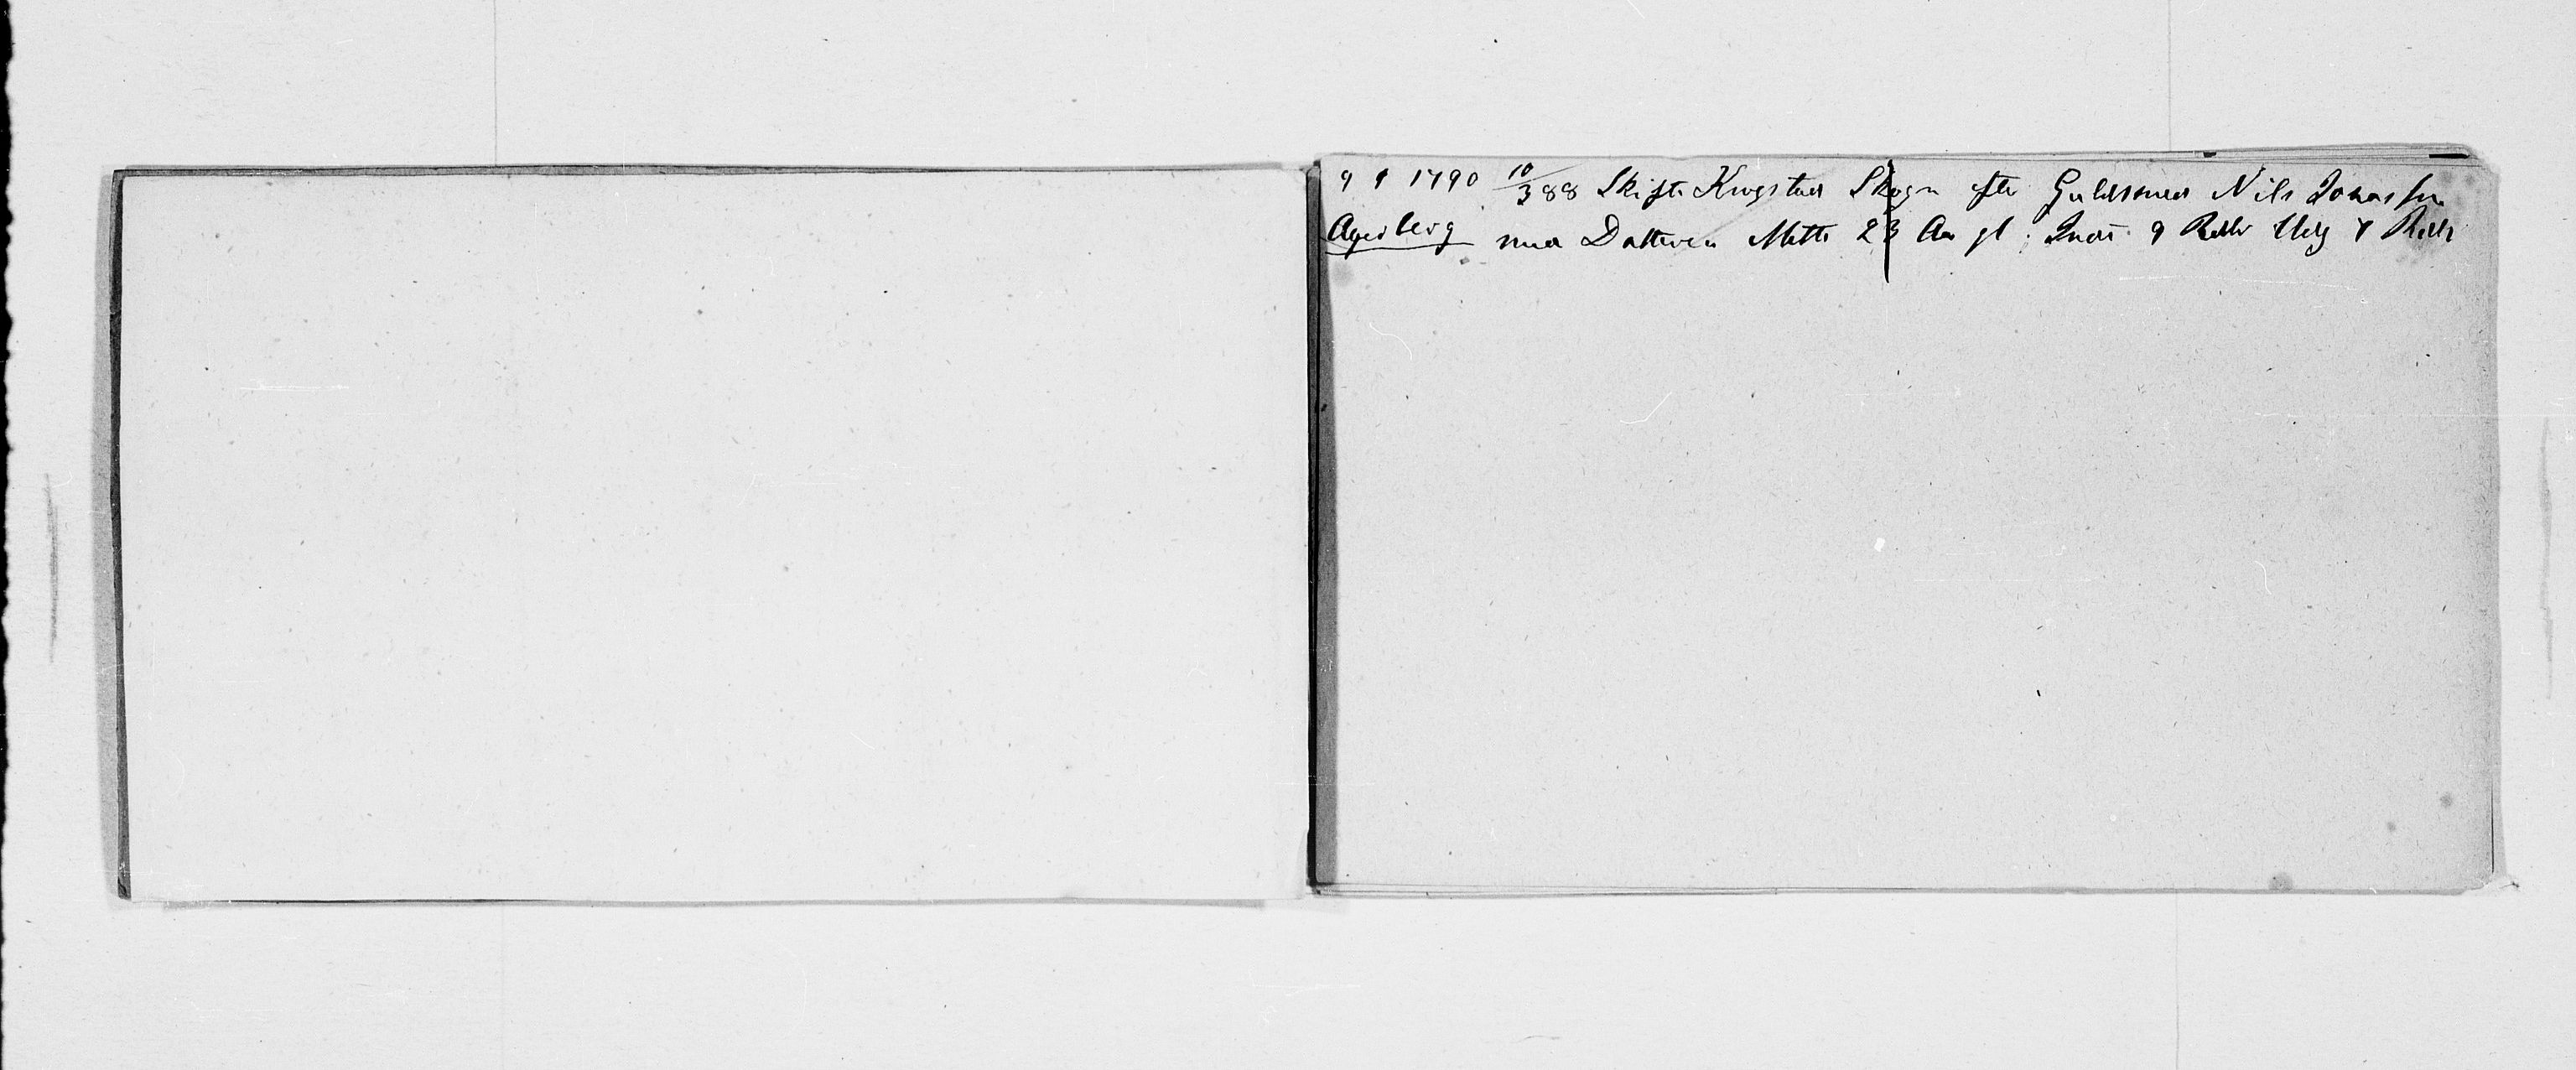 9 9 1790 10/388 Skifte Krogstad Skogn efter Guldsmed Nils Jonassen
Agerberg med Datteren Mette 23 Aar gl. Indt 9 Rdlr Udg 8 Rdlr